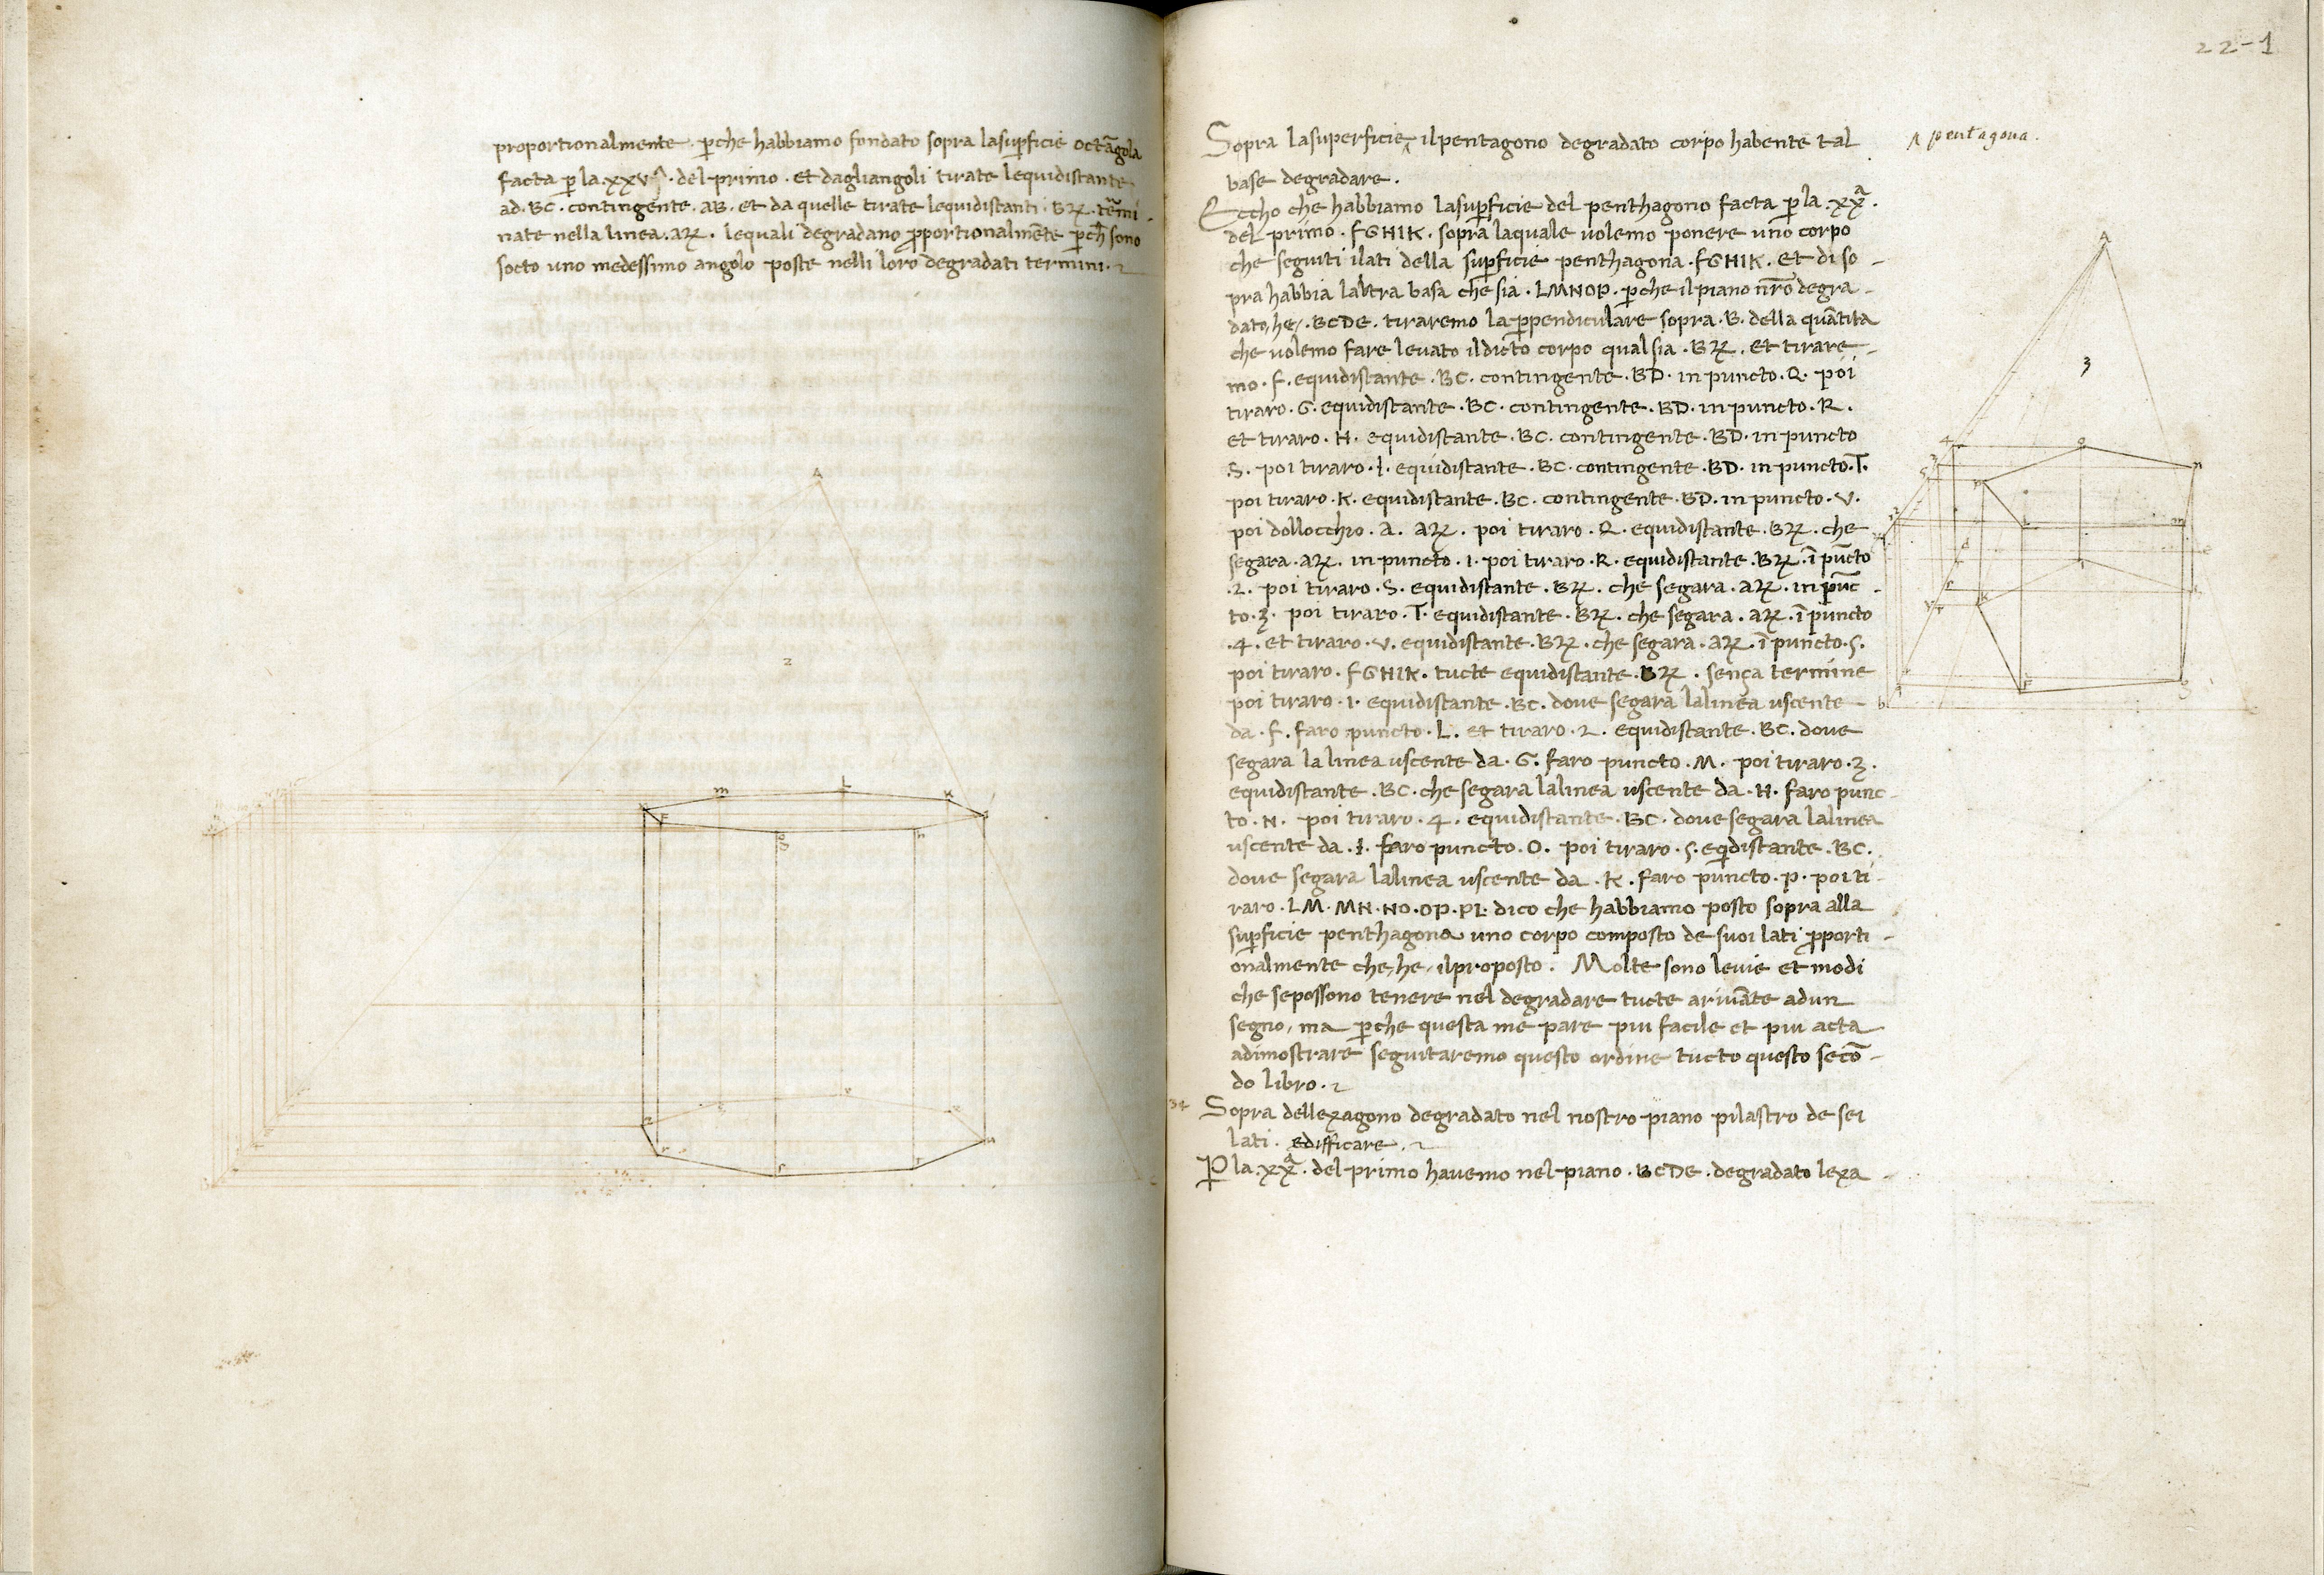 proportionalmente. ꝑche habbiamo fondato sopra lasuꝑficie octãgola
facta ꝑ la.xxvª. del primo. et dagliangoli tirate lequidistante
ad.BC.contingente.AB.et da quelle tirate lequidistanti.BꝜ.tẽmi-
nate nella linea.AꝜ. lequali degradano ꝓportionalmẽte ꝑch̃ sono
socto uno medessimo angolo poste nelli loro degradati termini.
A
2
22-1
Sopra lasuperficie ‸ ilpentagono degradato corpo habente tal
‸ pentagona.
base degradare.
Eccho che habbiamo lasuꝑficie del penthagono facta ꝑ la.xxª.
del primo.FGHIK. sopra laquale volemo ponere uno corpo
che seguiti ilati della suꝑficie penthagona.FGHIK.et di so-
pra habbia laltra basa che sia.LMNOP. ꝑche ilpiano nr̃o degra-
dato, he,.BCDE. tiraremo la ꝑpendiculare sopra.B.della quãtita
che volemo fare levato ildicto corpo qual sia.BꝜ.et tirare-
mo.F.equidistante.BC.contingente.BD.in puncto.Q. poi
tiraro.G.equidistante.BC.contingente.BD.in puncto.R.
et tiraro.H.equidistante.BC.contingente.BD.in puncto
.S. poi tiraro.I.equidistante.BC.contingente.BD.in puncto.T.
poi tiraro.K.equidistante.BC.contingente.BD.in puncto.V.
poi dollocchio.A.AꝜ. poi tiraro.Q.equidistante.BꝜ.che
segara.AꝜ.in puncto.1.poi tiraro.R.equidistante.BꝜ.ĩ pũcto
.2. poi tiraro.S.equidistante.BꝜ.che segara.AꝜ.in pũc-
to.3. poi tiraro.T.equidistante.BꝜ.che segara.AꝜ.ĩ puncto
.4.et tiraro.V.equidistante.BꝜ.che segara.AꝜ.ĩ puncto.5.
poi tiraro.FGHIK.tucte equidistante.BꝜ. sença termine
poi tiraro.1.equidistante.BC.dove segara lalinea uscente
da.F.faro puncto.L. et tiraro.2.equidistante.BC.dove
segara la linea uscente da.G.faro puncto.M. poi tiraro.3.
equidistante.BC.che segara lalinea uscente da.H.faro punc-
to.N. poi tiraro.4.equidistante.BC.dove segara lalinea
uscente da.I.faro puncto.O. poi tiraro.5.eq̃distante.BC.
dove segara lalinea uscente da.K.faro puncto.P.poi ti-
raro.LM.MN.NO.OP.PL.dico che habbiamo posto sopra alla
suꝑficie penthagona uno corpo composto de suoi lati ꝓporti-
onalmente che, he, ilproposto. Molte sono le vie et modi
che sepossono tenere nel degradare tucte arivãte adun
segno, ma ꝑche questa me pare piu facile et piu acta
adimostrare seguitaremo questo ordine tucto questo secõ-
do libro.
34 Sopra dellexagono degradato nel nostro piano pilastro de sei
lati. edifficare.
P la.xxª.del primo havemo nel piano.BCDE.degradato lexa-
A
3